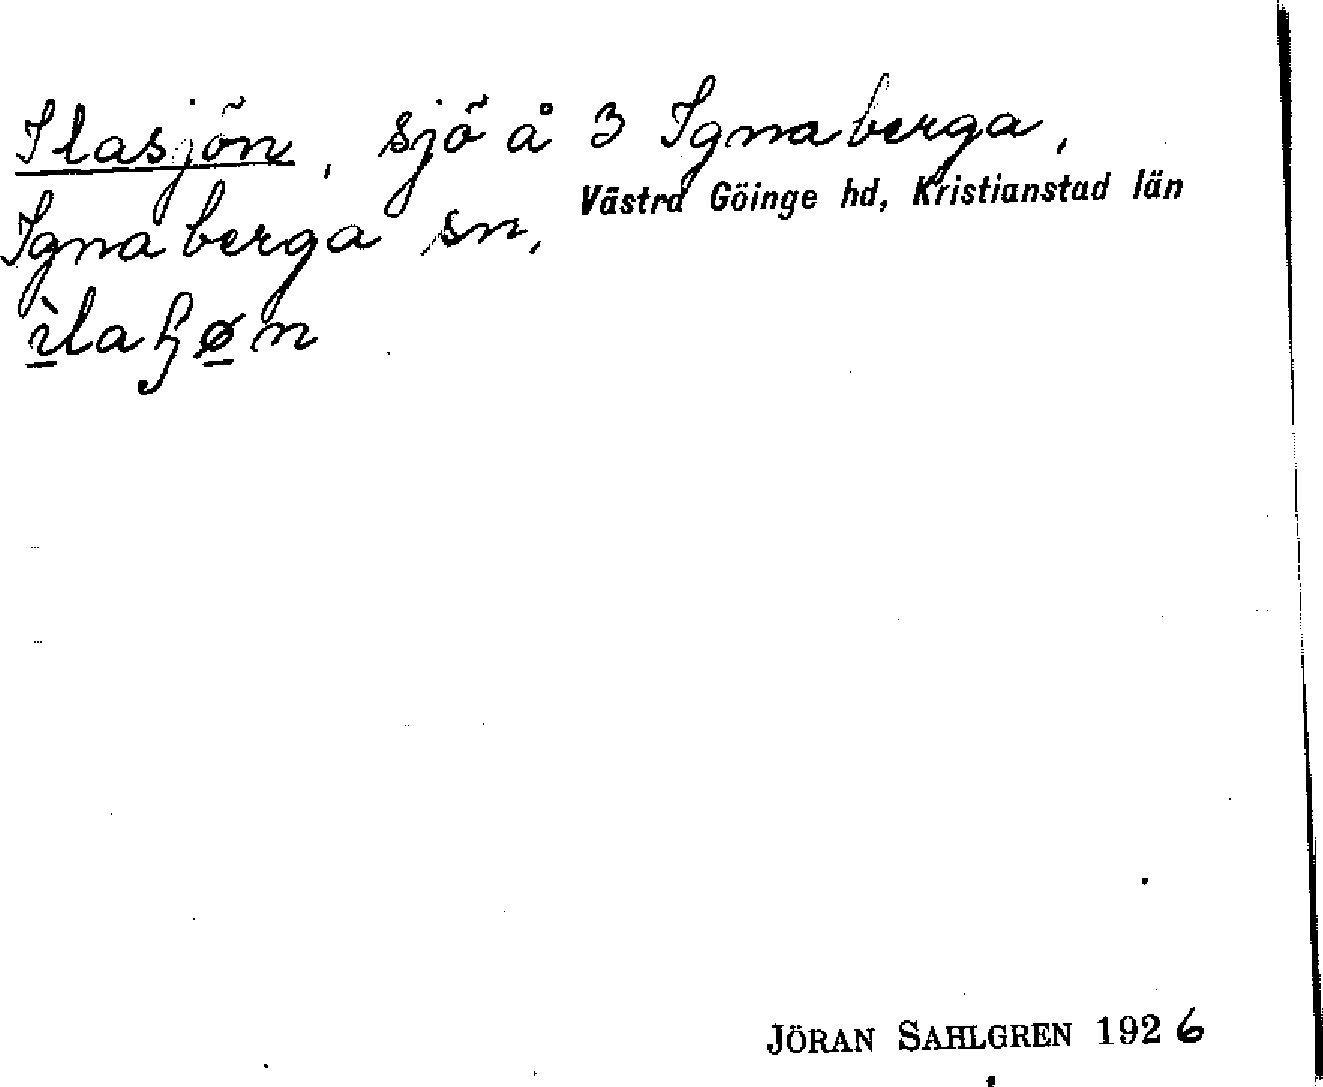 Ilasjön, sjö å 3 Ignaberga,
Ignaberga sn, Västra Göinge hd, Kristianstad län
JÖRAN SAHLGREN 1926